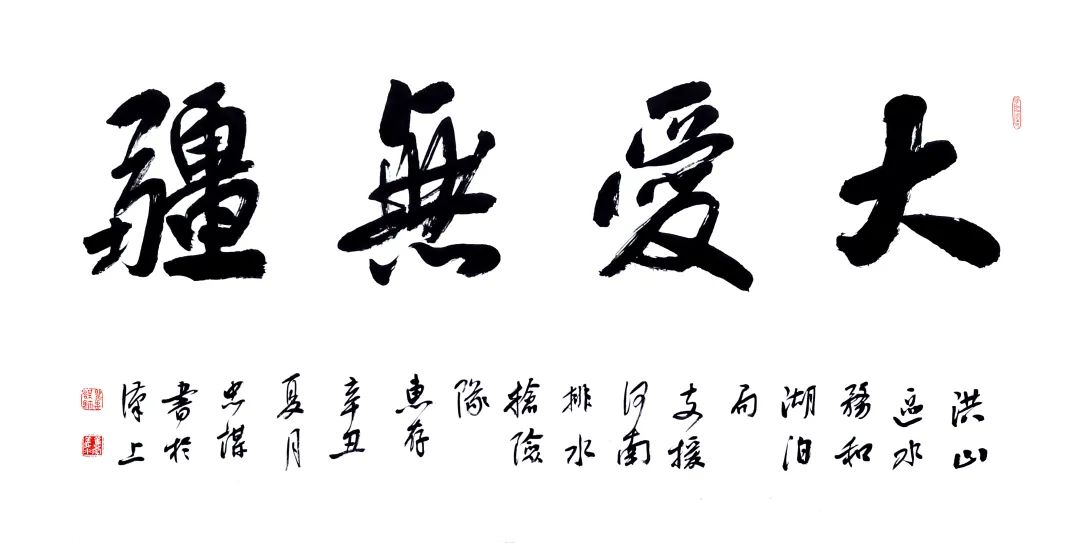 大愛無疆
洪山
區水
務和
湖泊
局
支援
河南
排水
搶險
隊
惠存
辛丑
夏月
忠謀
書於
漢上